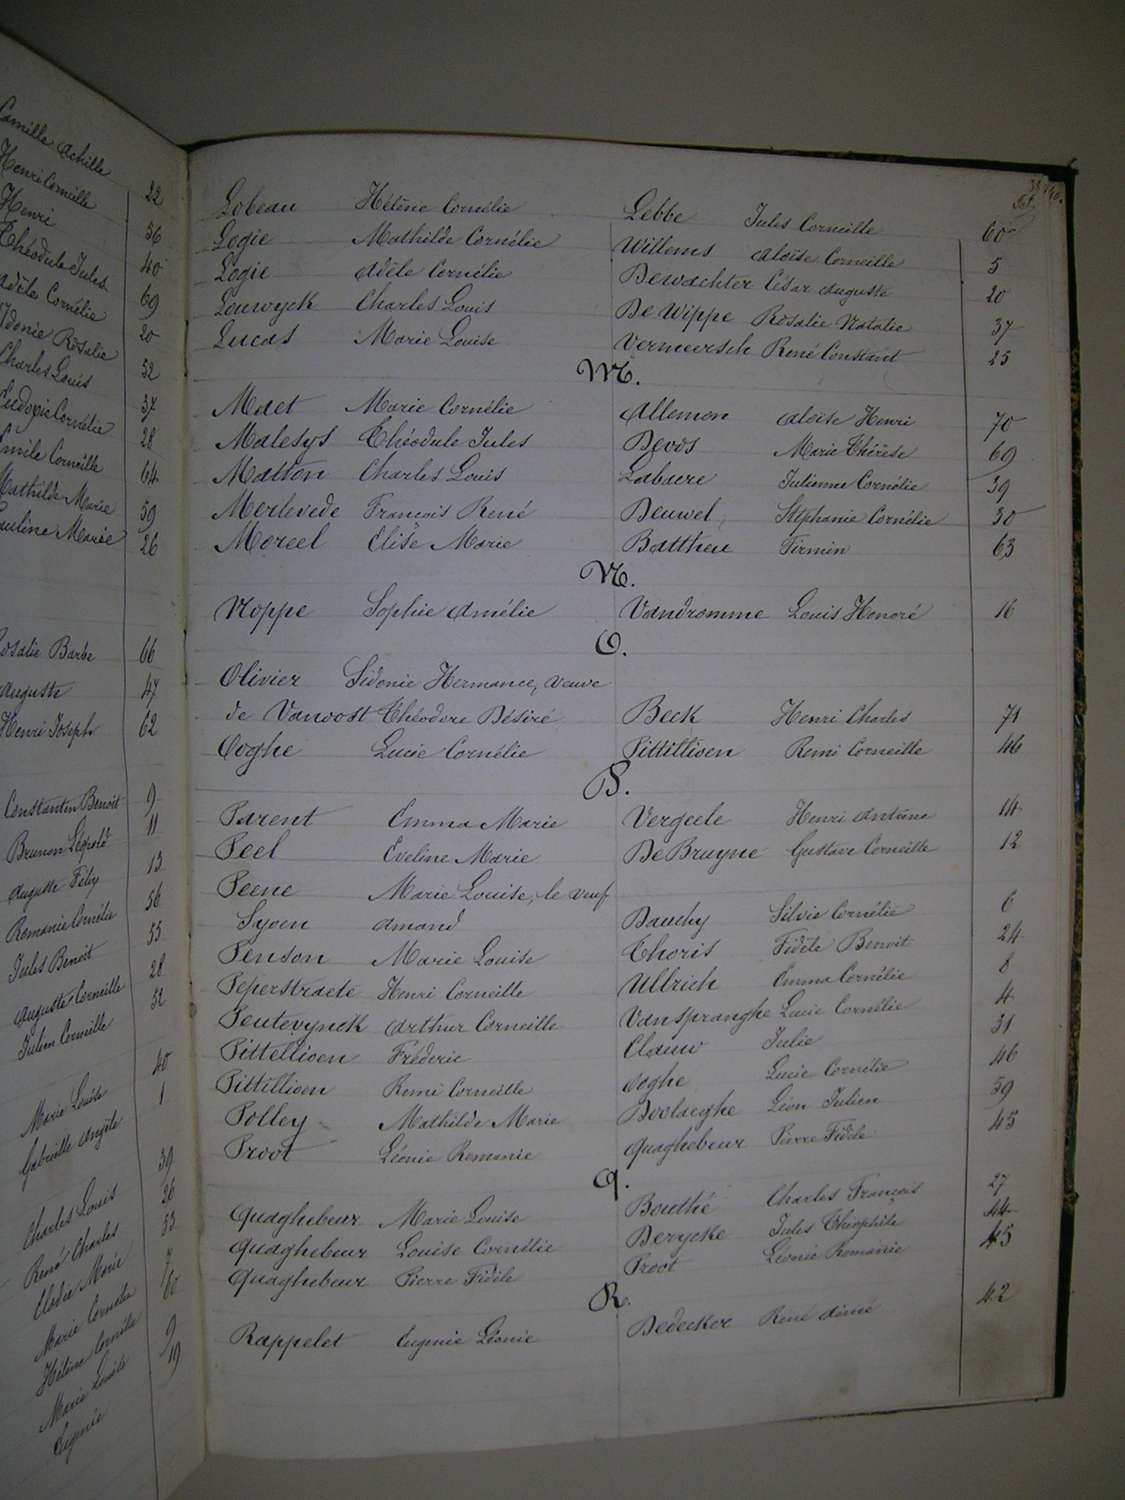 Camille Achille 22
Henri Corneille
Henri 56
Théodule Jules 40
Adèle Cornélie 69
Sidonie Rosalie 20
Charles Louis 52
Ludovie Cornélie 37
Emile Corneille 28
Mathilde Marie 64
Pauline Marie 59
26
Rosalie Barbe 66
Auguste 47
Henri Joseph 62
Constantin Benoit 9
Brunon Léopold 11
Auguste Félix 13
Romanie Cornélie 56
Jules Benoit 55
Auguste Corneille 28
Julien Corneille 52
Marie Louise 40
Gabrielle Angèle 1
Charles Louis 39
René Charles 26
Elodie Marie 53
Marie Cornélie 7
Hélène Cornélie 60
Marie Louise 9
Eugenie 19
Lobeau Hélène Cornélie Lebbe Jules Corneille 60
Logie Mathilde Cornélie Willems Aloïse Corneille 5
Logie Adèle Cornélie Dewachter César Auguste 20
Louwyck Charles Louis De Wippe Rosalie Natalie 37
Lucas Marie Louise Vermeersch René Constant 25
M.
Maet Marie Cornélie Allemon Aloïse Henri 70
Malesys Théodule Jules Devos Marie Thérèse 69
Matton Charles Louis Labaere Julienne Cornélie 39
Merlevede François René Deuwel Stéphanie Cornélie 30
Moreel Elise Marie Battheu Firmin 63
N.
Noppe Sophie Amélie Vandromme Louis Honoré 16
O.
Olivier Sidonie Hermance, veuve
de Vanoost Théodore Désiré Beck Henri Charles 71
Ooghe Lucie Cornélie Pittillioen Remi Corneille 46
P.
Parent Emma Marie Vergeele Henri Antoine 14
Peel Eveline Marie DeBruyne Gustave Corneille 12
Peene Marie Louise, le veuf
Syoen Amand Dauchy Silvie Cornélie 6
Penson Marie Louise Thoris Fidèle Benoit 24
Peperstraete Henri Corneille Ullrich Emma Cornélie 8
Peutevynck Arthur Corneille Vanspranghe Lucie Cornélie 4
Pittellioen Fréderic Clauw Julie 31
Pittillioen Remi Corneille Ooghe Lucie Cornélie 46
Polley Mathilde Marie Deelaeghe Léon Julien 59
Proot Léonie Romanie Quaghebeur Pierre Fidèle 45
Q.
Quaghebeur Marie Louise Bouthé Charles François 27
Quaghebeur Louise Cornélie Derycke Jules Théophile 44
Quaghebeur Pierre Fidèle Proot Léonie Romanie 45
R.
Rappelet Eugenie Léonie Dedecker René Aimé 42